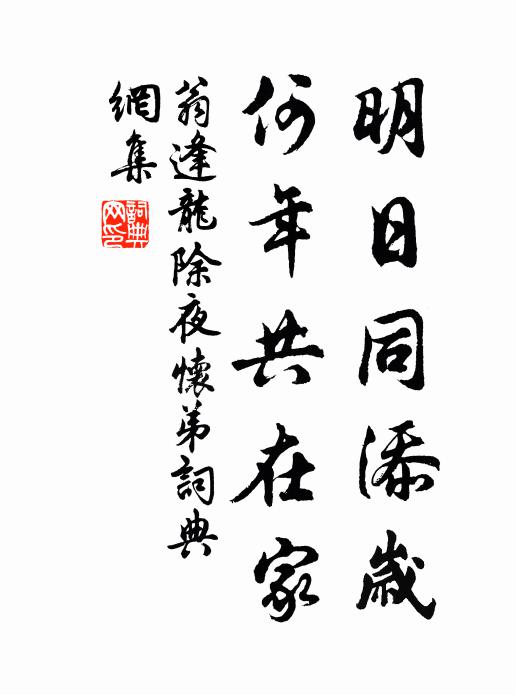 明日同添歲
何年共在家
翁逢龍除夜懷弟詞典
網集
詞典
网印